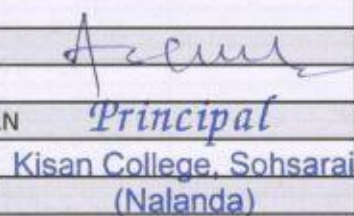 AN Principal
Kisan College, Sohsarai
(Nalanda)